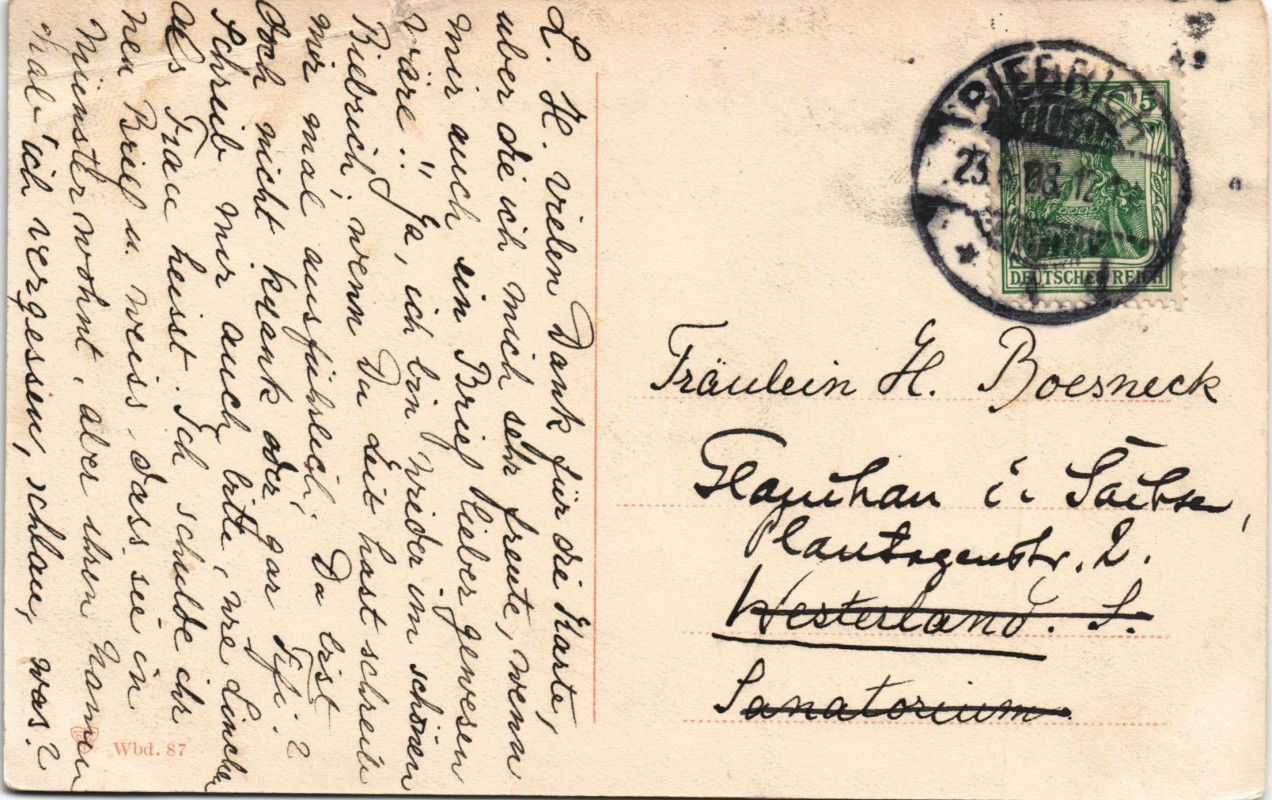 L. H. vielen Dank für die Karte,
über die ich mich sehr freute, wenn
mir auch ein Brief lieber gewesen
wäre!! Ja, ich bin wieder im schönen
Biebrich, wenn Du Zeit hast schreibe
mir mal ausführlich, Du bist
doch nicht krank oder gar
Schreib mir auch, bitte, wie Linchen
als Frau heisst. Ich schulde ihr
nen Brief u. weiss, dass sie in
Münster wohnt, aber ihren Namen
hab' ich vergessen, schlau, was?
Wbd. 87
BIEBRICH
23. 08. 12
5
DEUTSCHES REICH
Fräulein H. Boesneck
Glauchau i. Sachse,
Plantagenstr. 2.
Westerland. S.
Sanatorium.